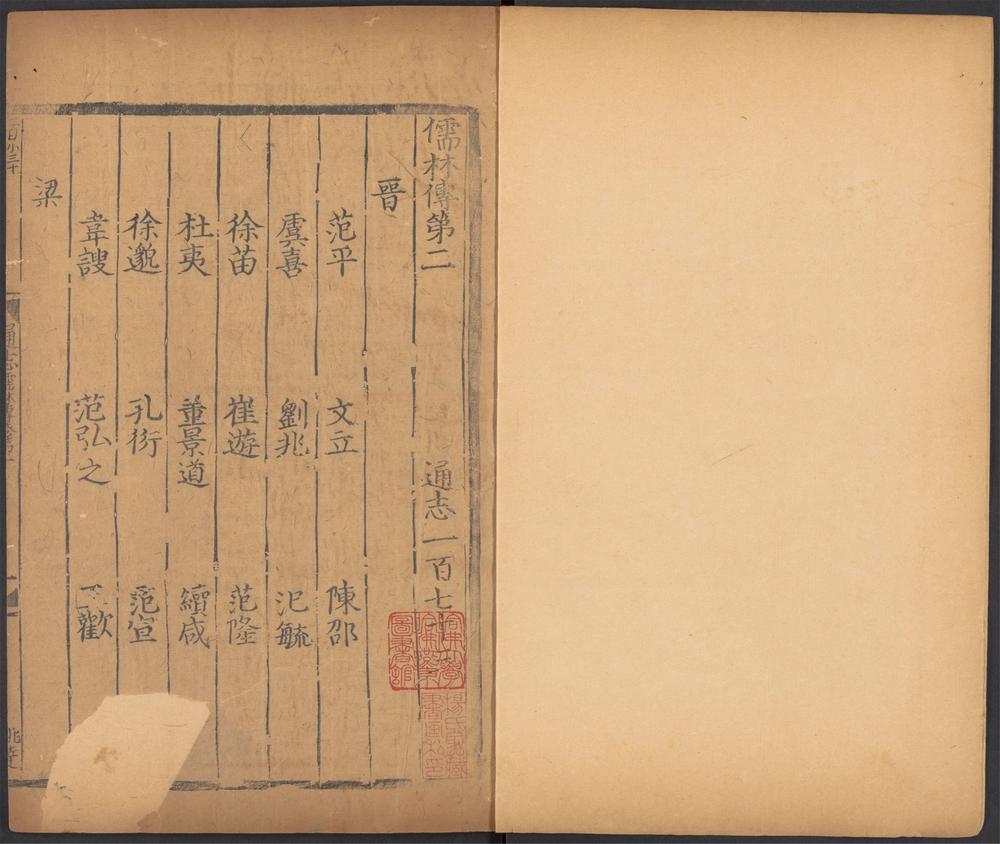 儒林傳第二　通志一百七十
晉
范平　文立　陳邵
虞喜　劉兆　氾毓
徐苗　崔遊　范隆
杜夷　董景道　續咸
徐邈　孔衍　范宣
韋謏　范弘之　王歡
梁